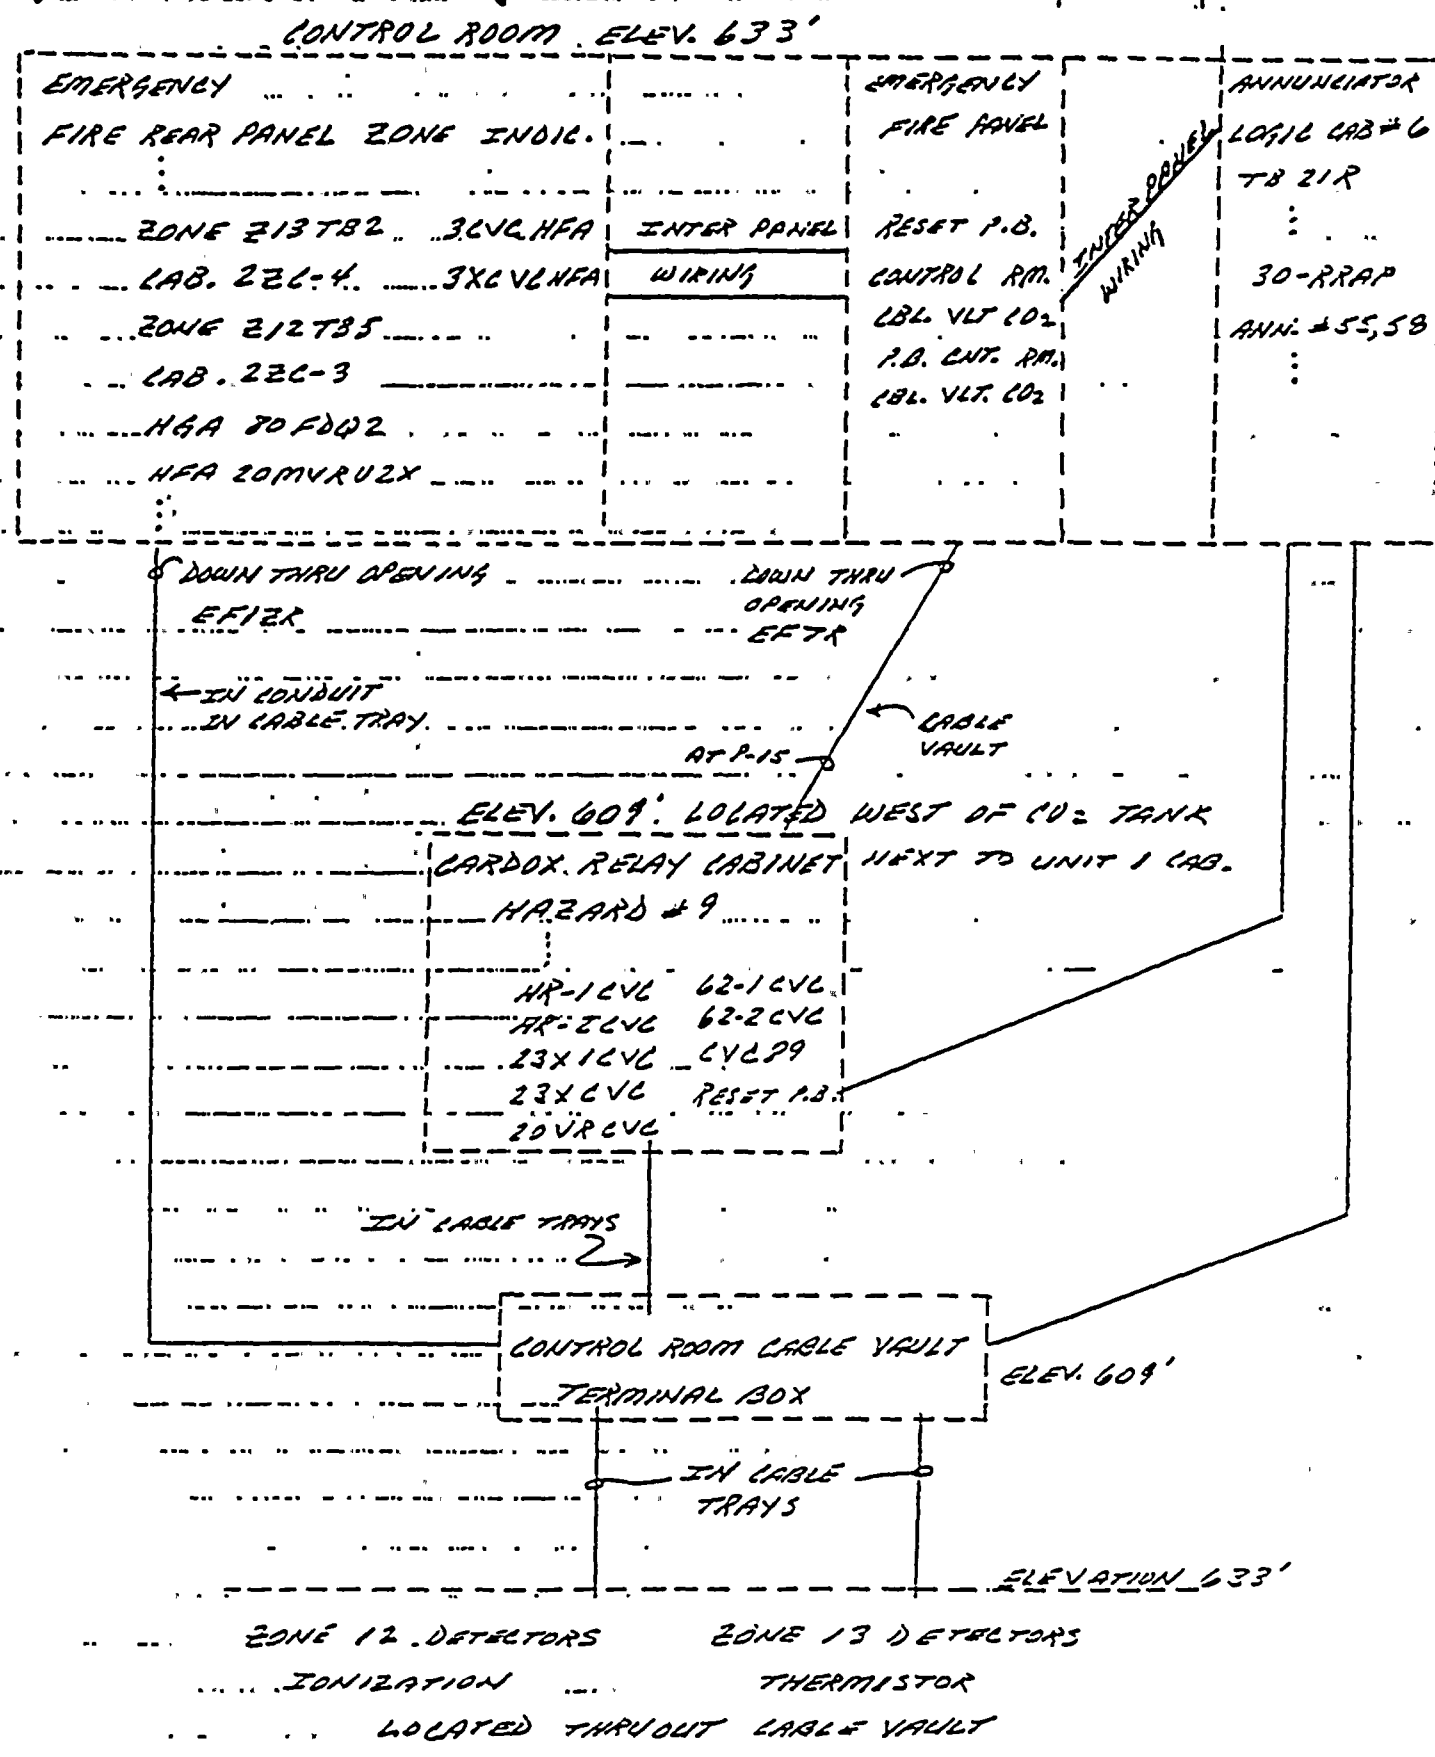 CONTROL ROOM ELEV. 633'
EMERGENCY
FIRE REAR PANEL ZONE INDIC.
ZONE Z13 TB2 3CVC HFA
CAB. 2ZC-4 3XCVCHFA
ZONE Z12 TB5
CAB. 2ZC-3
HGA 80FDQ2
HFA 20MVRU2X
INTER PANEL
WIRING
EMERGENCY
FIRE PANEL
RESET P.B.
CONTROL RM.
CBL. VLT CO2
P.B. CNT. RM.
CBL. VLT. CO2
INTER PANEL
WIRING
ANNUNCIATOR
LOGIC CAB #6
TB 21R
30-RRAP
ANN. #55,58
DOWN THRU OPENING
EF12R
DOWN THRU
OPENING
EF7R
IN CONDUIT
IN CABLE TRAY
CABLE
VAULT
AT P-15
ELEV. 609' LOCATED WEST OF CO2 TANK
NEXT TO UNIT 1 CAB.
CARDOX RELAY CABINET
HAZARD #9
HR-1CVC 62-1CVC
AR-2CVC 62-2CVC
23X1CVC CVC89
23XCVC RESET P.B.
20VRCVC
IN CABLE TRAYS
CONTROL ROOM CABLE VAULT
TERMINAL BOX
ELEV. 609'
IN CABLE
TRAYS
ELEVATION 633'
ZONE 12 DETECTORS ZONE 13 DETECTORS
IONIZATION THERMISTOR
LOCATED THRUOUT CABLE VAULT